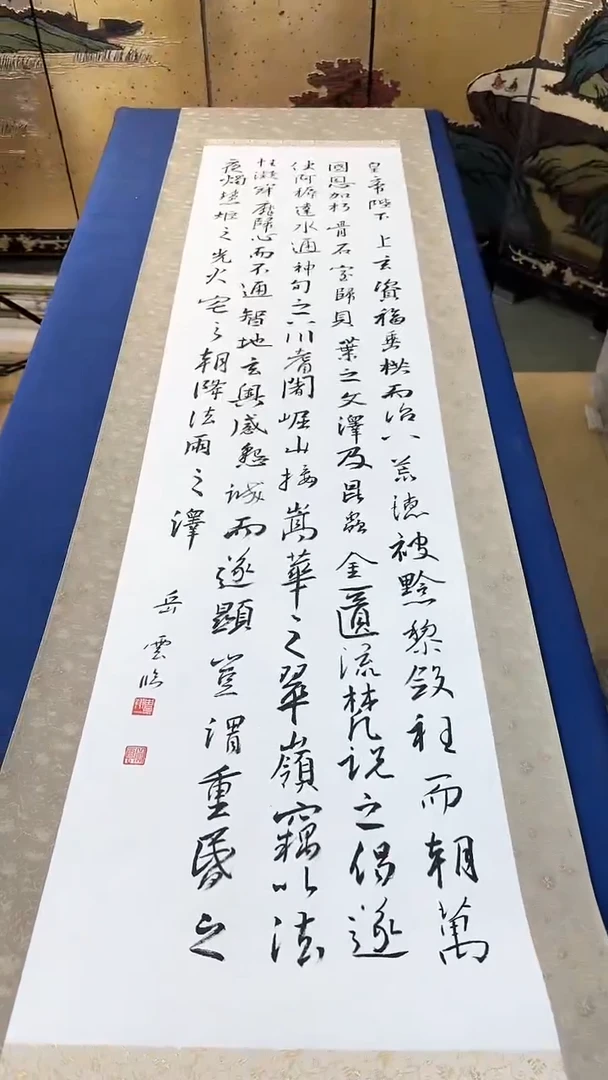 皇帝陛下上玄資福垂拱而治八荒德被黔黎斂衽而朝萬
國恩加朽骨石室歸貝葉之文澤及昆蟲金匱流梵說之偈遂
使阿耨達水通神甸之八川耆闍崛山接嵩華之翠嶺竊以法
性凝寂靡歸心而不通智地玄奧感懇誠而遂顯豈謂重昬之
夜燭慧炬之光火宅之朝降法雨之澤
岳雲臨